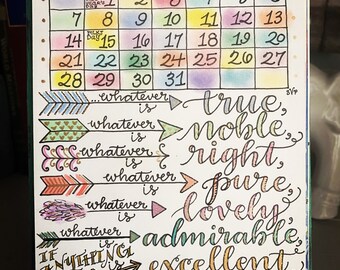 1 2 3 4 5 6
7 8 9 10 11 12 13
14 15 16 17 18 19 20
21 22 23 24 25 26 27
28 29 30 31
...whatever is true,
whatever is noble,
whatever is right,
whatever is pure,
whatever is lovely,
whatever is admirable,
IF ANYTHING is excellent